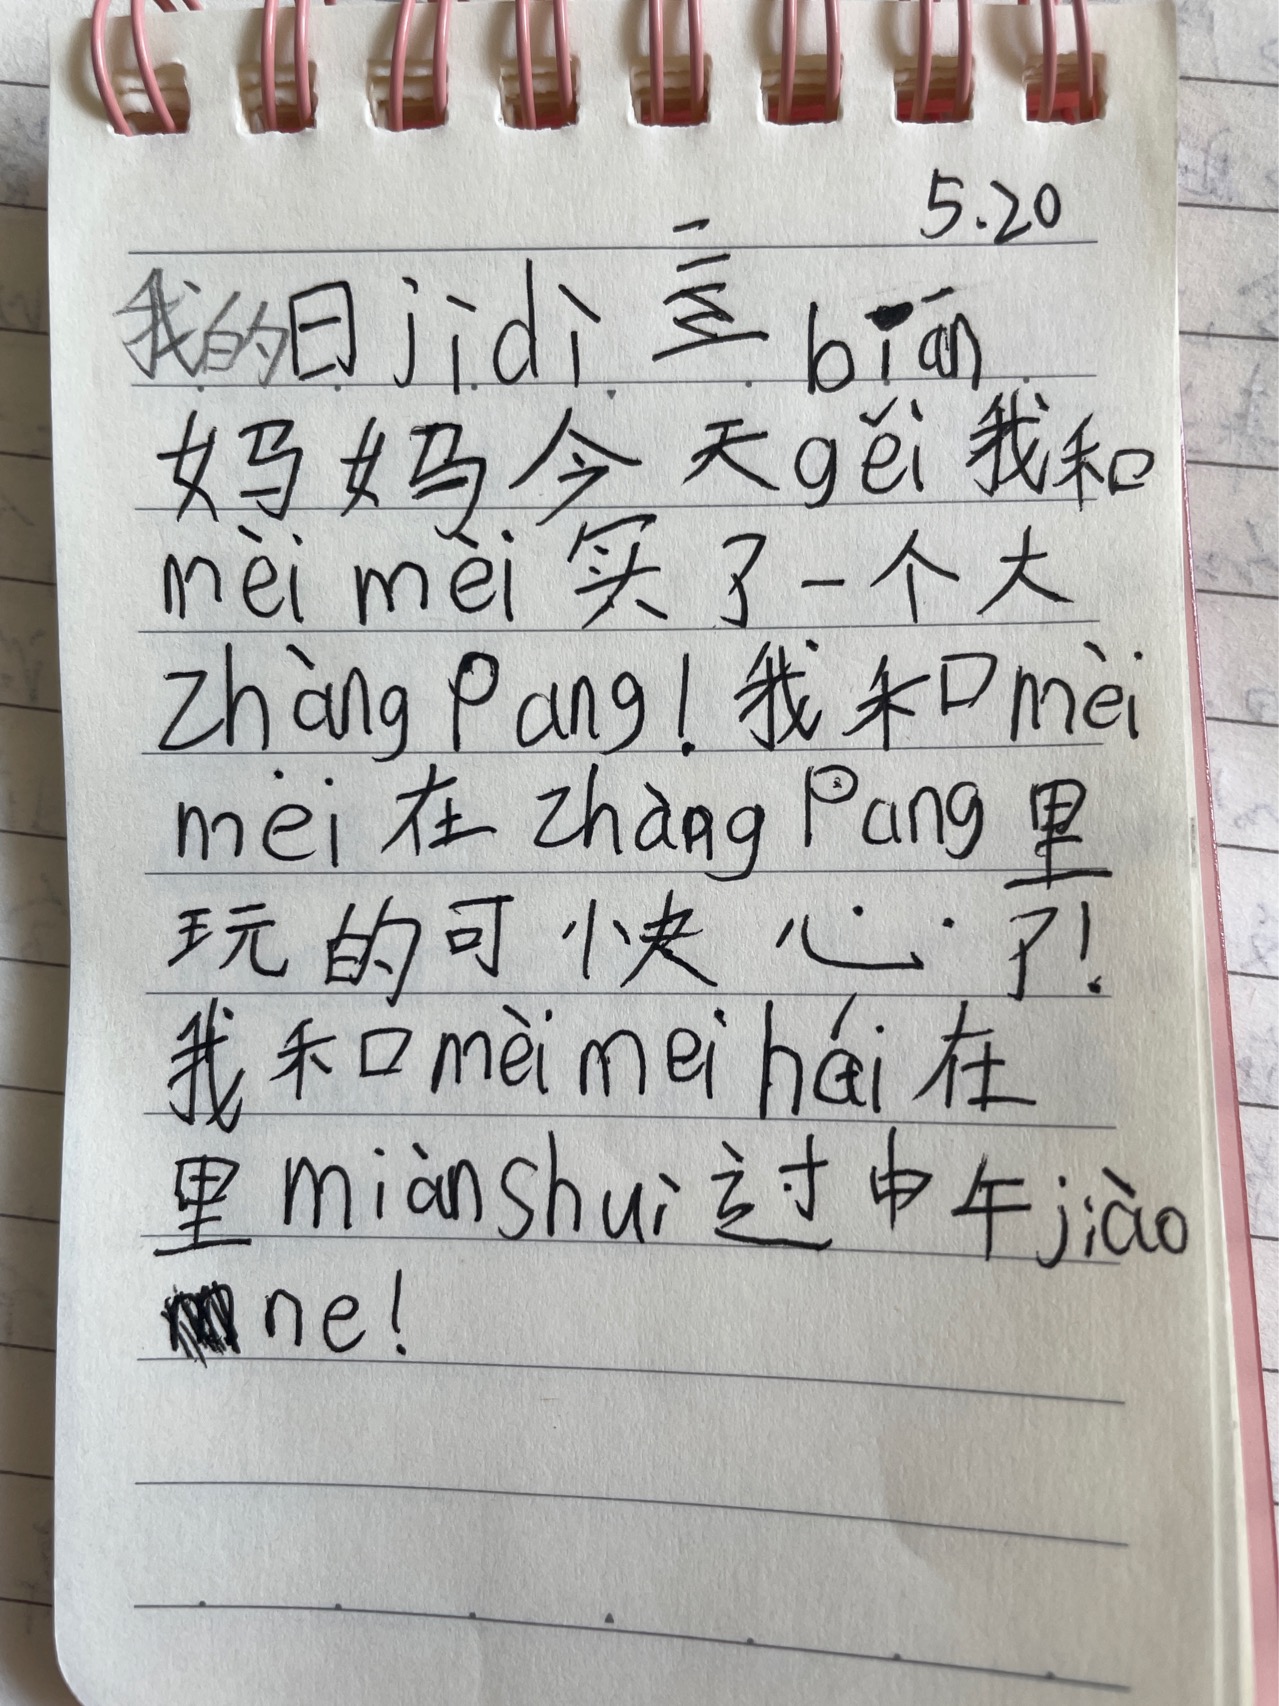 5.20
我的日jìdì三biān
妈妈今天gěi我和
mèi mèi 买了一个大
zhàng Pang! 我和mèi
mèi 在 zhàng Pang 里
玩的可快心了!
我和mèi mei hái 在
里 miàn shuì 过中午 jiào
ne!